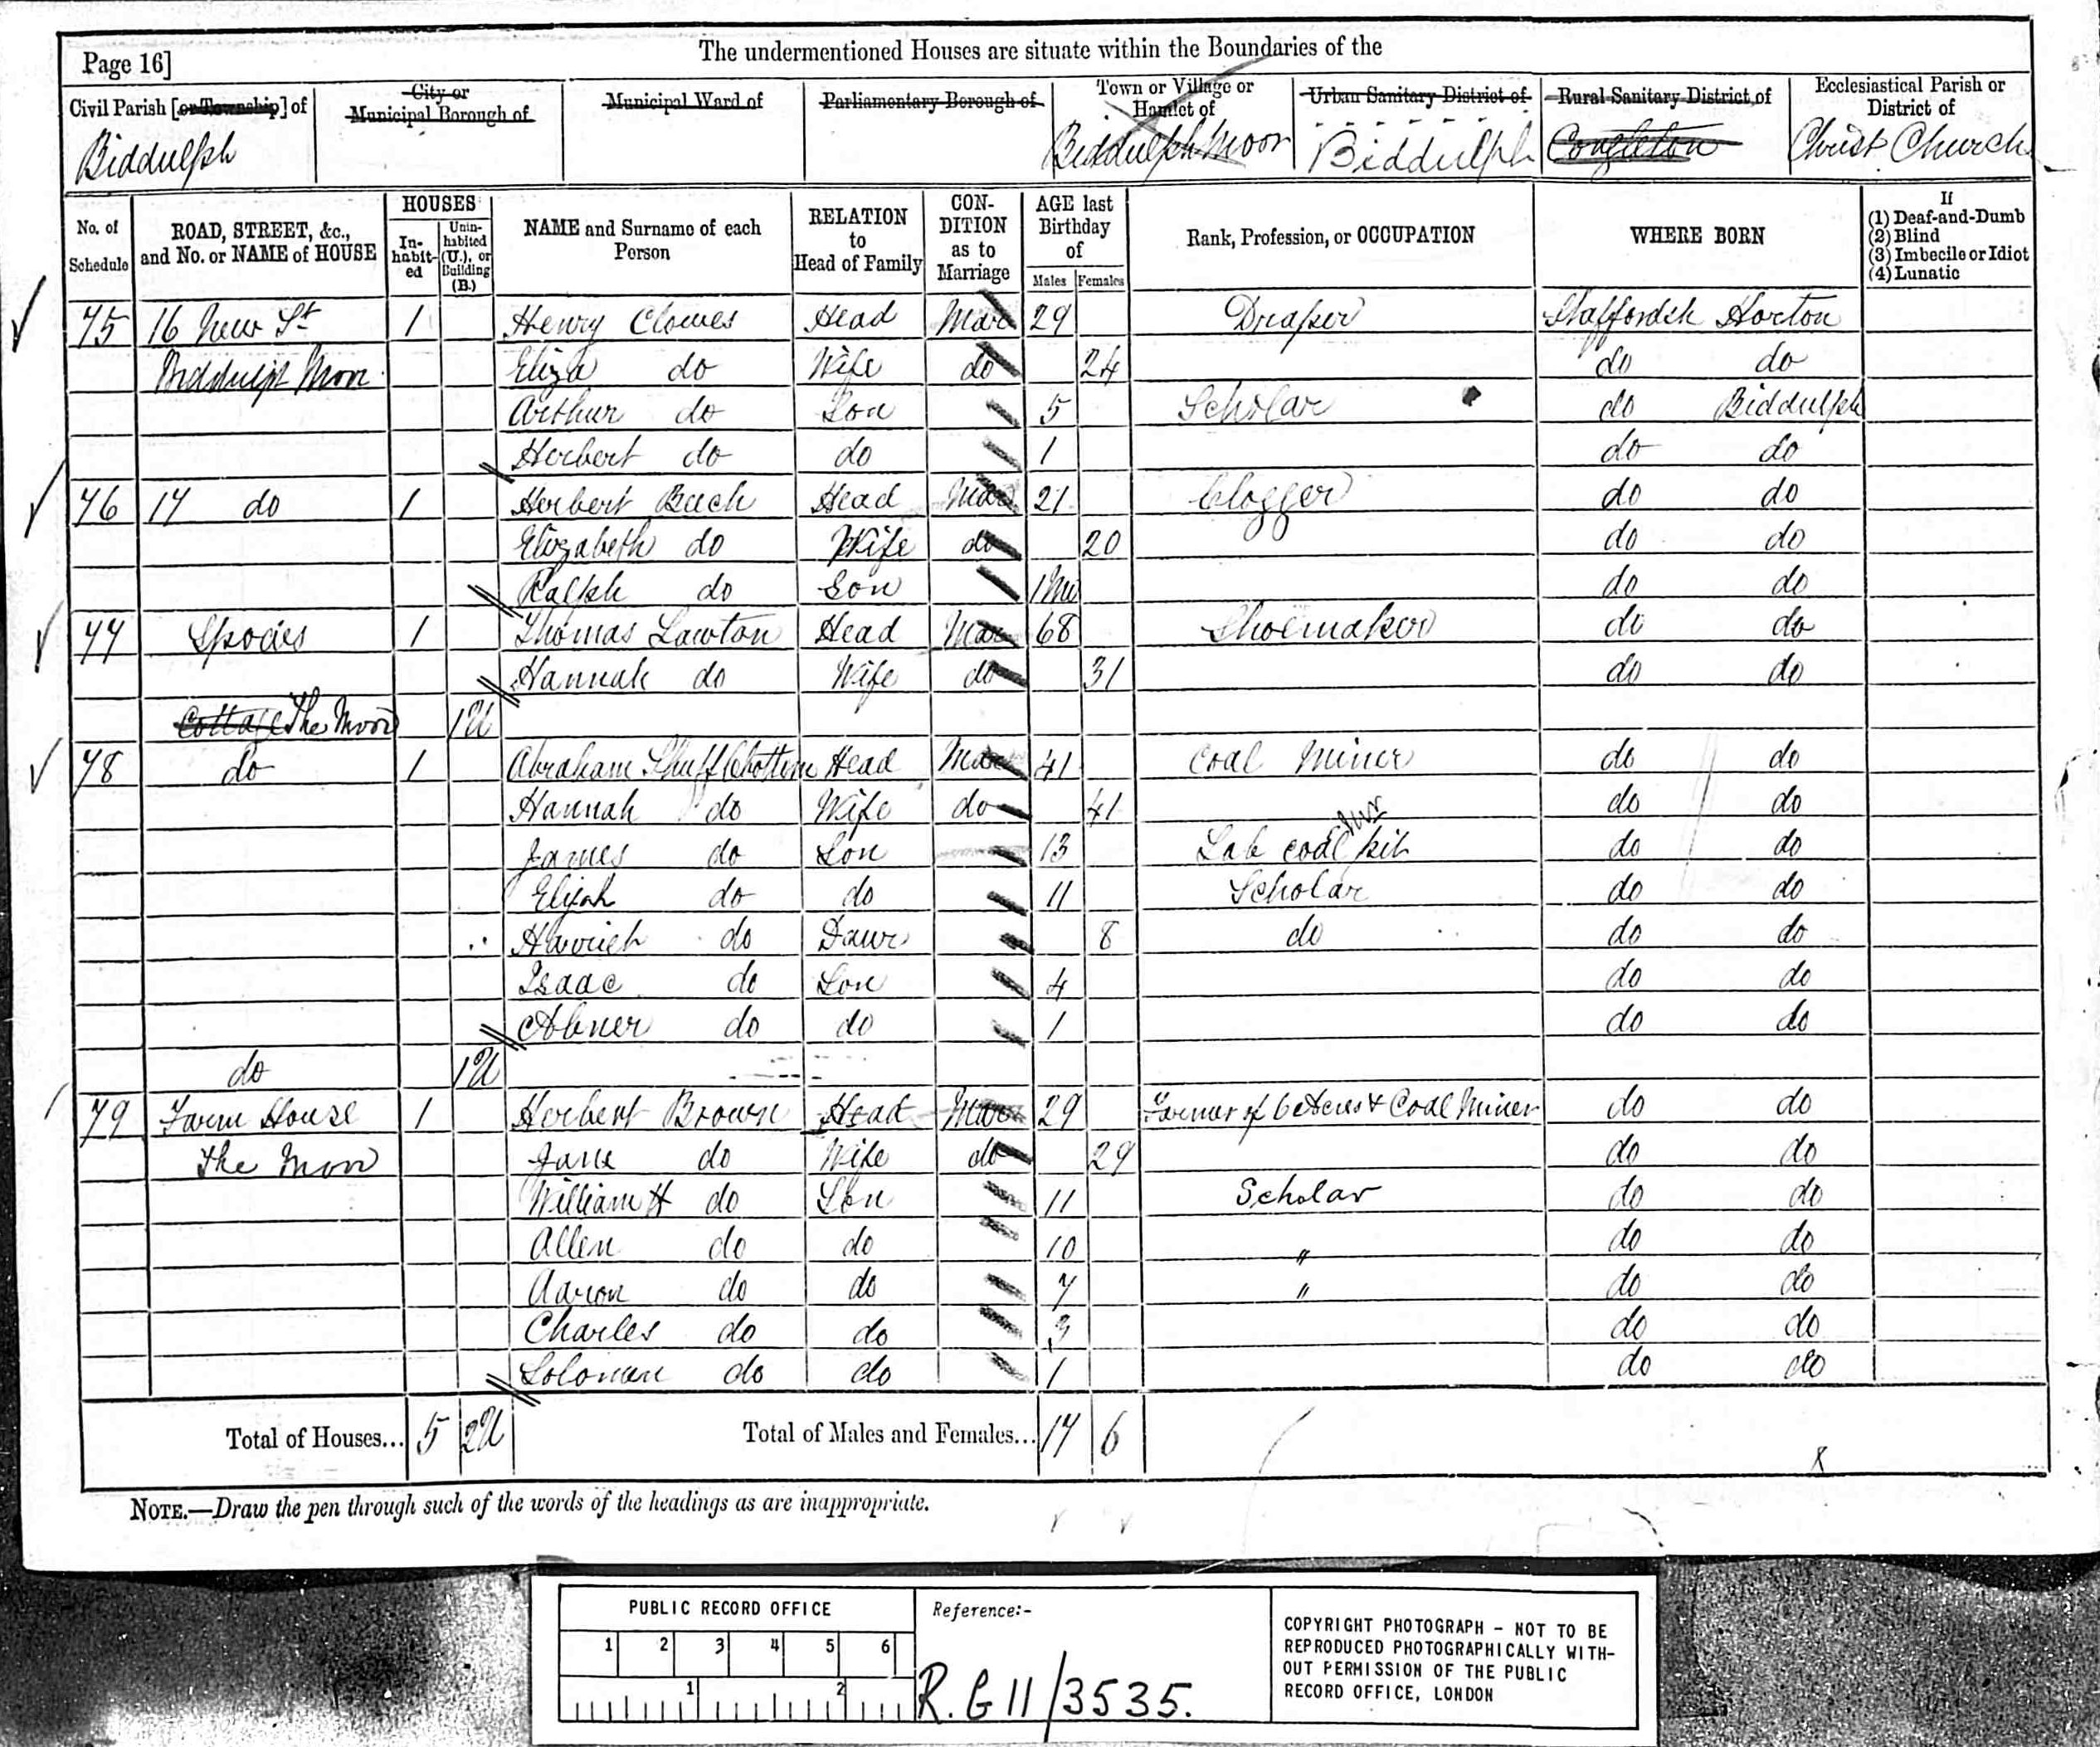 Page 16]
The undermentioned Houses are situate within the Boundaries of the
Civil Parish [or Township] of
City or
Municipal Borough of
Municipal Ward of
Parliamentary Borough of
Town or Village or
Hamlet of
Urban Sanitary District of
Rural Sanitary District of
Ecclesiastical Parish or
District of
Biddulph
Biddulph Moor
Biddulph
Congleton
Christ Church
No. of
Schedule
ROAD, STREET, &c.,
and No. or NAME of HOUSE
HOUSES
In-
habit-
ed
Unin-
habited
(U.), or
Building
(B.)
NAME and Surname of each
Person
RELATION
to
Head of Family
CON-
DITION
as to
Marriage
AGE last
Birthday
of
Males
Females
Rank, Profession, or OCCUPATION
WHERE BORN
If
(1) Deaf-and-Dumb
(2) Blind
(3) Imbecile or Idiot
(4) Lunatic
75 16 New St 1 Henry Clowes Head Mar 29 Draper Staffordsh Horton
Biddulph Moor Eliza do Wife do 24 do do
Arthur do Son 5 Scholar do Biddulph
Herbert do do 1 do do
76 17 do 1 Herbert Bach Head Mar 21 Clogger do do
Elizabeth do Wife do 20 do do
Ralph do Son 1 Mo do do
77 1 Thomas Lawton Head Mar 68 Shoemaker do do
Hannah do Wife do 31 do do
Cottage The Moor 1U
78 do 1 Abraham Head Mar 41 Coal Miner do do
Hannah do Wife do 41 do do
James do Son 13 Lab coal pit do do
Elijah do do 11 Scholar do do
Harriet do Daur 8 do do do
Isaac do Son 4 do do
Abner do do 1 do do
do 1U
79 Farm House 1 Herbert Brown Head Mar 29 Farmer of 6 Acres & Coal Miner do do
The Moor Jane do Wife do 29 do do
William H do Son 11 Scholar do do
Allen do do 10 " do do
Aaron do do 7 " do do
Charles do do 3 do do
Soloman do do 1 do do
Total of Houses... 5 2U Total of Males and Females... 17 6
NOTE.—Draw the pen through such of the words of the headings as are inappropriate.
PUBLIC RECORD OFFICE
1 2 3 4 5 6
1 2
Reference:-
R.G 11/3535.
COPYRIGHT PHOTOGRAPH - NOT TO BE
REPRODUCED PHOTOGRAPHICALLY WITH-
OUT PERMISSION OF THE PUBLIC
RECORD OFFICE, LONDON